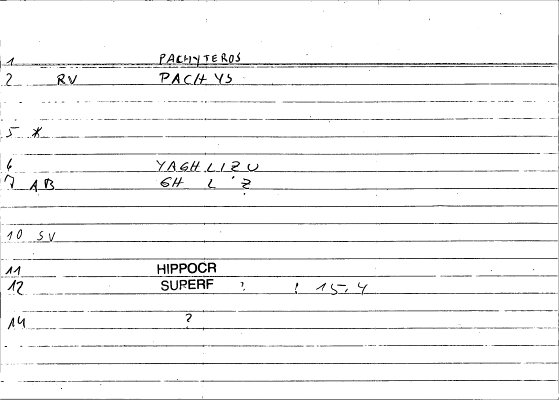 1 PACHYTEROS
2 RV PACHYS
5 *
6 YAGHLIZU
7 AB GH L ' Z
10 SV
11 HIPPOCR
12 SUPERF ? ! 15.4
14 ?